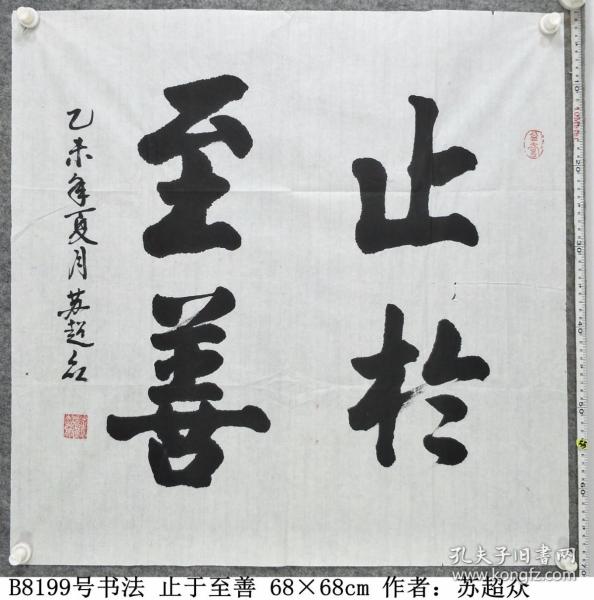 止於
至善
乙未年夏月 苏超众
孔夫子旧书网
www.kongfz.com
B8199号书法 止于至善 68×68cm 作者：苏超众